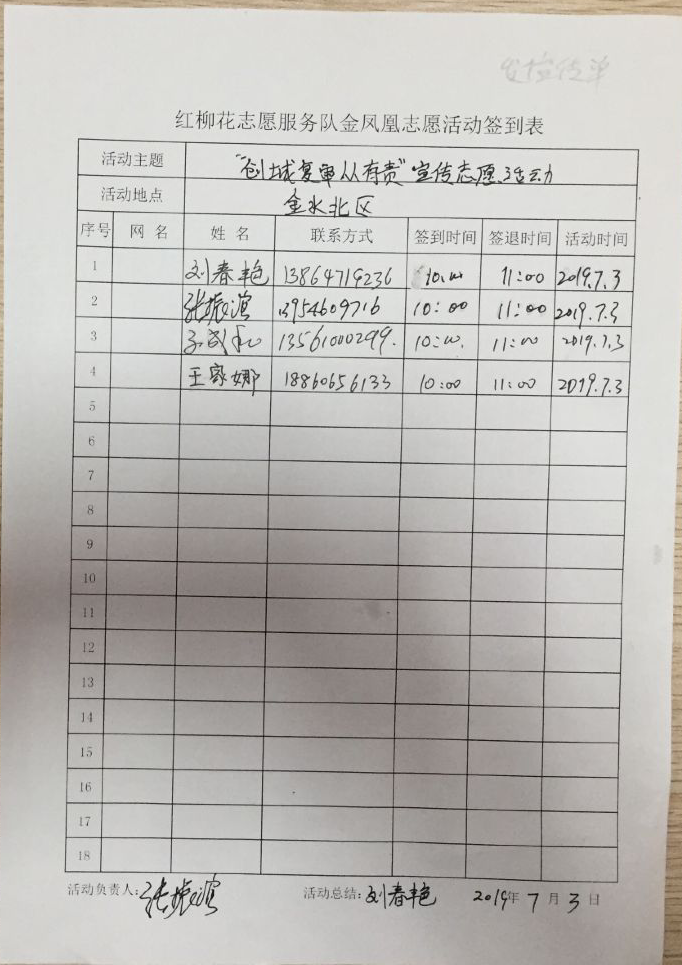 发宣传单
红柳花志愿服务队金凤凰志愿活动签到表
活动主题 "创城复审从有责"宣传志愿活动
活动地点 金水北区
序号 网 名 姓 名 联系方式 签到时间 签退时间 活动时间
1 刘春艳 13864719236 10:00 11:00 2019.7.3
2 张振滨 13954609716 10:00 11:00 2019.7.3
3 13561000299. 10:00. 11:00 2019.7.3
4 王家娜 18860656133 10:00 11:00 2019.7.3
5
6
7
8
9
10
11
12
13
14
15
16
17
18
活动负责人:张振滨 活动总结:刘春艳 2019年 7 月 3 日